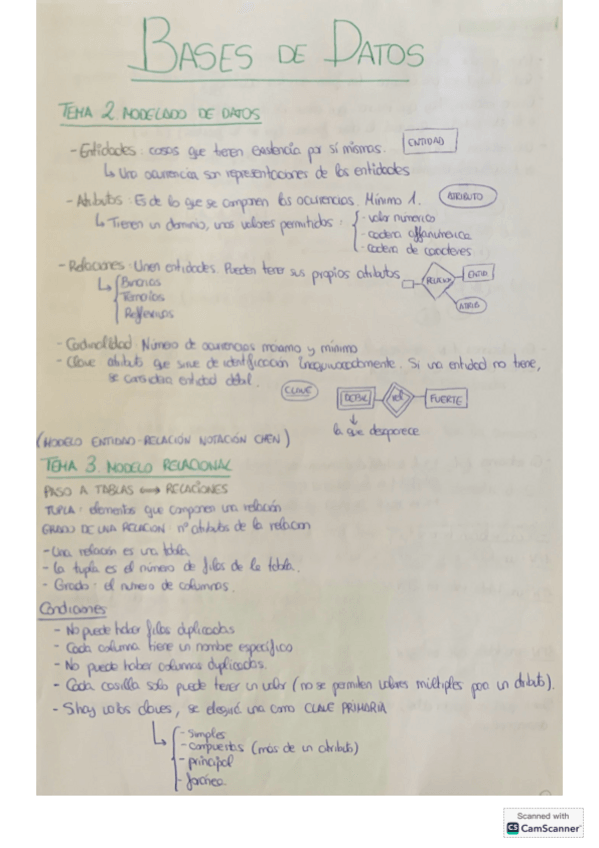 BASES DE DATOS
TEMA 2. MODELADO DE DATOS
- Entidades: cosas que tienen existencia por sí mismas. ENTIDAD
↳ Una ocurrencia son representaciones de las entidades
- Atributos: Es de lo que se componen las ocurrencias. Mínimo 1. ATRIBUTO
↳ Tienen un dominio, unos valores permitidos: - valor numérico
- cadena alfanumérica
- cadena de caracteres
- Relaciones: Unen entidades. Pueden tener sus propios atributos
RELACIÓN ENTID
ATRIB
↳ Binarias
Ternarias
Reflexivas
- Cardinalidad: Número de ocurrencias máximo y mínimo
- Clave: atributo que sirve de identificación inequivocadamente. Si una entidad no tiene,
se considera entidad débil.
CLAVE DÉBIL rel FUERTE
↓
la que desaparece
(MODELO ENTIDAD-RELACIÓN NOTACIÓN CHEN)
TEMA 3. MODELO RELACIONAL
PASO A TABLAS ⟷ RELACIONES
TUPLA: elementos que componen una relación
GRADO DE UNA RELACION: nº atributos de la relacion
- Una relación es una tabla
- La tupla es el número de filas de la tabla.
- Grado: el numero de columnas.
Condiciones
- No puede haber filas duplicadas
- Cada columna tiene un nombre específico
- No puede haber columnas duplicadas.
- Cada casilla solo puede tener un valor (no se permiten valores múltiples para un atributo).
- Si hay varias claves, se elegirá una como CLAVE PRIMARIA
↳ - Simples
- Compuestas (más de un atributo)
- principal
- foránea
Scanned with
CS CamScanner